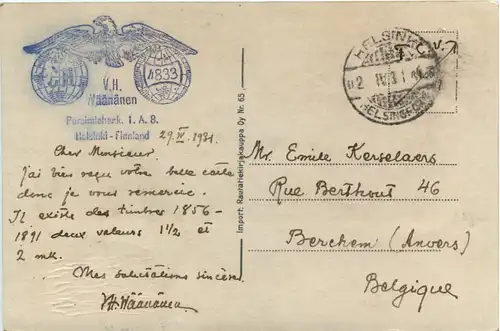 4833
V.H.
Wäänänen
1. A. 8.
Helsinki - Finnland
29.IV.1931.
Cher Monsieur.
J'ai bien reçu votre belle carte
dont je vous remercie.
Il existe des timbres 1856-
1891 deux valeurs 1½ et
2 mk.
Mes salutations sincères
VHWäänänen
Import: Rautatiekirjakauppa Oy Nr. 65
HELSINKI
HELSINGFORS
T.C.V.
Mr. Emile Kerselaers
Rue Berthout 46
Berchem (Anvers)
Belgique